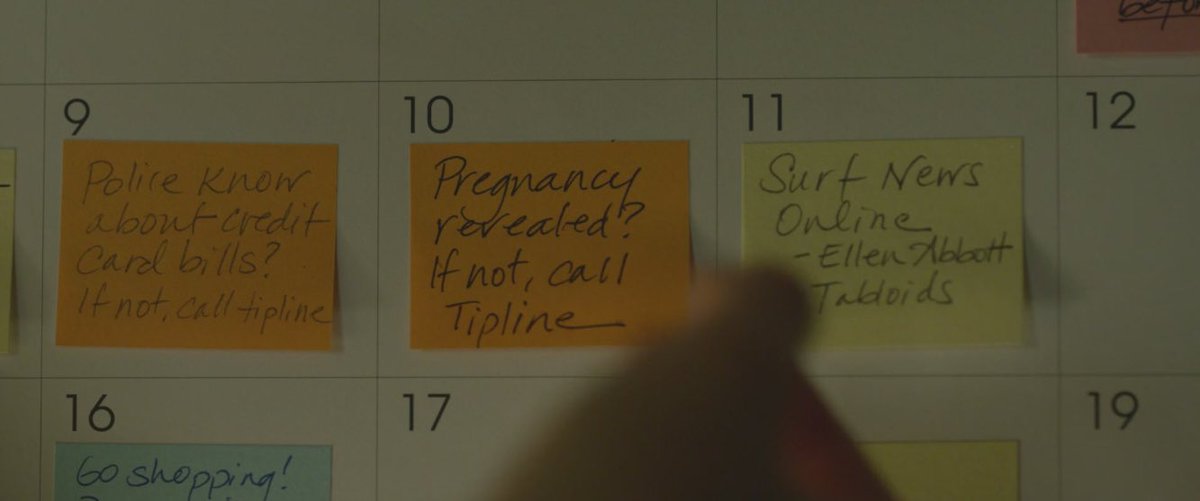 9
Police Know
about credit
Card bills?
If not, call tipline
10
Pregnancy
revealed?
If not, call
Tipline
11
Surf News
Online
-Ellen Abbott
Tabloids
12
16
Go shopping!
17
19